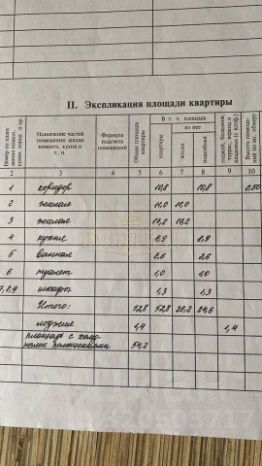 II. Экспликация площади квартиры
Назначение частей помещения: жилая комната, кухня и т. п.
Формула подсчета помещений
Общая площадь квартиры
В т. ч. площадь
из нее
квартиры
жилая
подсобная
2 3 4 5 6 7 8 9 10
1 коридор 10,8 10,8 2,50
2 жилая 11,0 11,0
3 жилая 17,2
4 кухня 8,9 8,9
5 ванная 2,6 2,6
6 туалет 1,0 1,0
7,8,9 шкафы 1,3 1,3
Итого: 52,8 52,8 28,2 24,6
лоджия 1,4 1,4
площадь с холодными помещениями 54,2